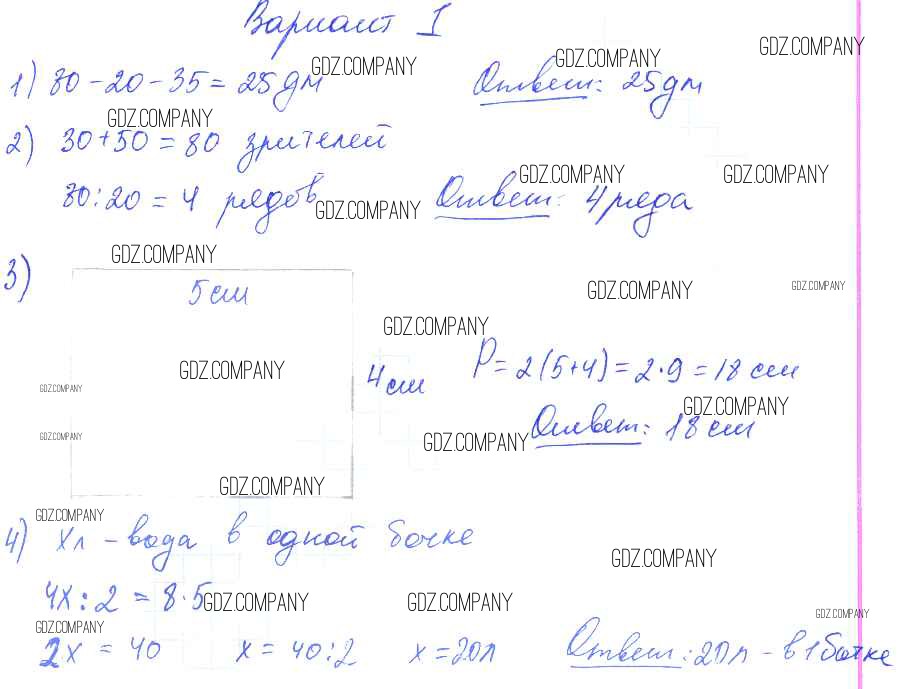 Вариант I
GDZ.COMPANY
GDZ.COMPANY GDZ.COMPANY
1) 80 - 20 - 35 = 25 дм Ответ: 25 дм
GDZ.COMPANY
2) 30 + 50 = 80 зрителей
GDZ.COMPANY GDZ.COMPANY
80 : 20 = 4 рядов Ответ: 4 ряда
GDZ.COMPANY
GDZ.COMPANY
3)
5 см
GDZ.COMPANY GDZ.COMPANY
GDZ.COMPANY
GDZ.COMPANY 4 см P = 2(5+4) = 2·9 = 18 см
GDZ.COMPANY
GDZ.COMPANY
Ответ: 18 см
GDZ.COMPANY GDZ.COMPANY
GDZ.COMPANY
GDZ.COMPANY
4) Xл - вода в одной бочке
GDZ.COMPANY
4X : 2 = 8·5
GDZ.COMPANY GDZ.COMPANY GDZ.COMPANY
GDZ.COMPANY
2X = 40 X = 40:2 X = 20л Ответ: 20л - в 1 бочке